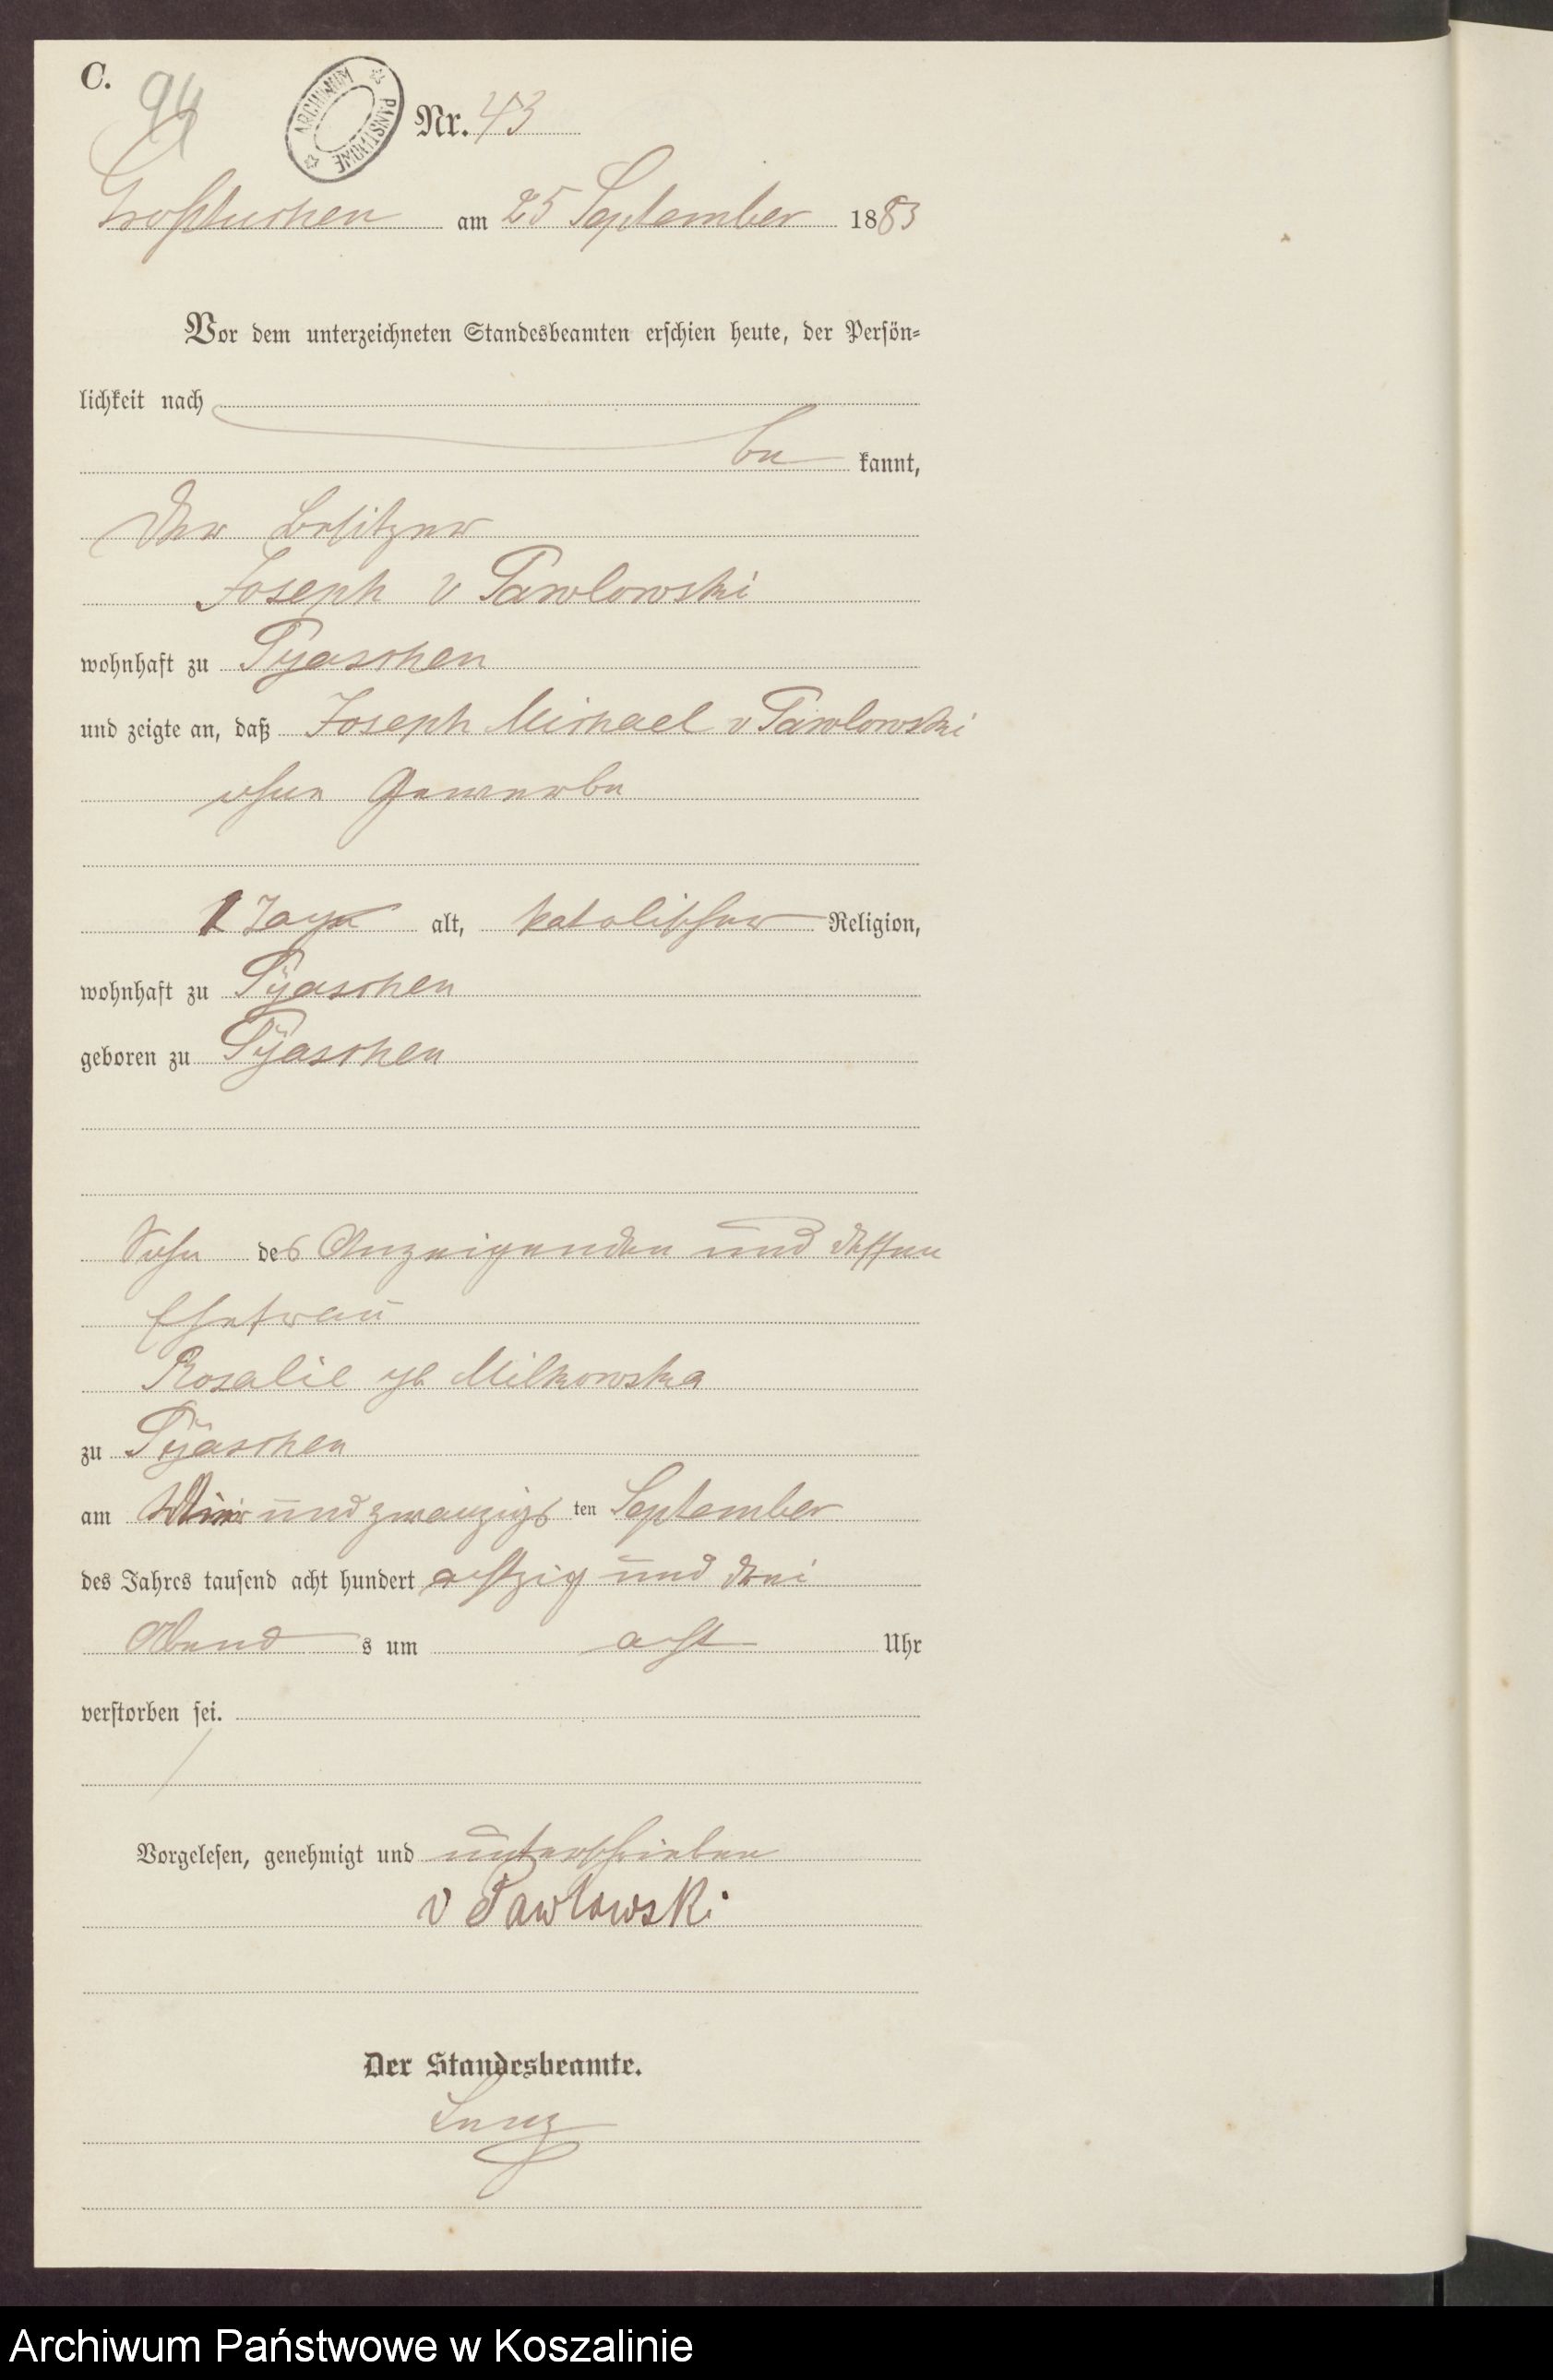 C.
94
ARCHIWUM PAŃSTWOWE
Nr. 43
Großtuchen am 25 September 1883
Vor dem unterzeichneten Standesbeamten erschien heute, der Persön-
lichkeit nach
be kannt,
der Besitzer
Joseph v Pawlowski
wohnhaft zu Pyaschen
und zeigte an, daß Joseph Michael v Pawlowski
ohne Gewerbe
Tage alt, katolischer Religion,
wohnhaft zu Pÿaschen
geboren zu Pÿaschen
Sohn des Anzeigenden und dessen
Ehefrau
Rosalie gb Milkowska
zu Pÿaschen
am und zwanzigs ten September
des Jahres tausend acht hundert achtzig und drei
Abend s um acht Uhr
verstorben sei.
Vorgelesen, genehmigt und unterschrieben
v Pawlowski
Der Standesbeamte.
Archiwum Państwowe w Koszalinie